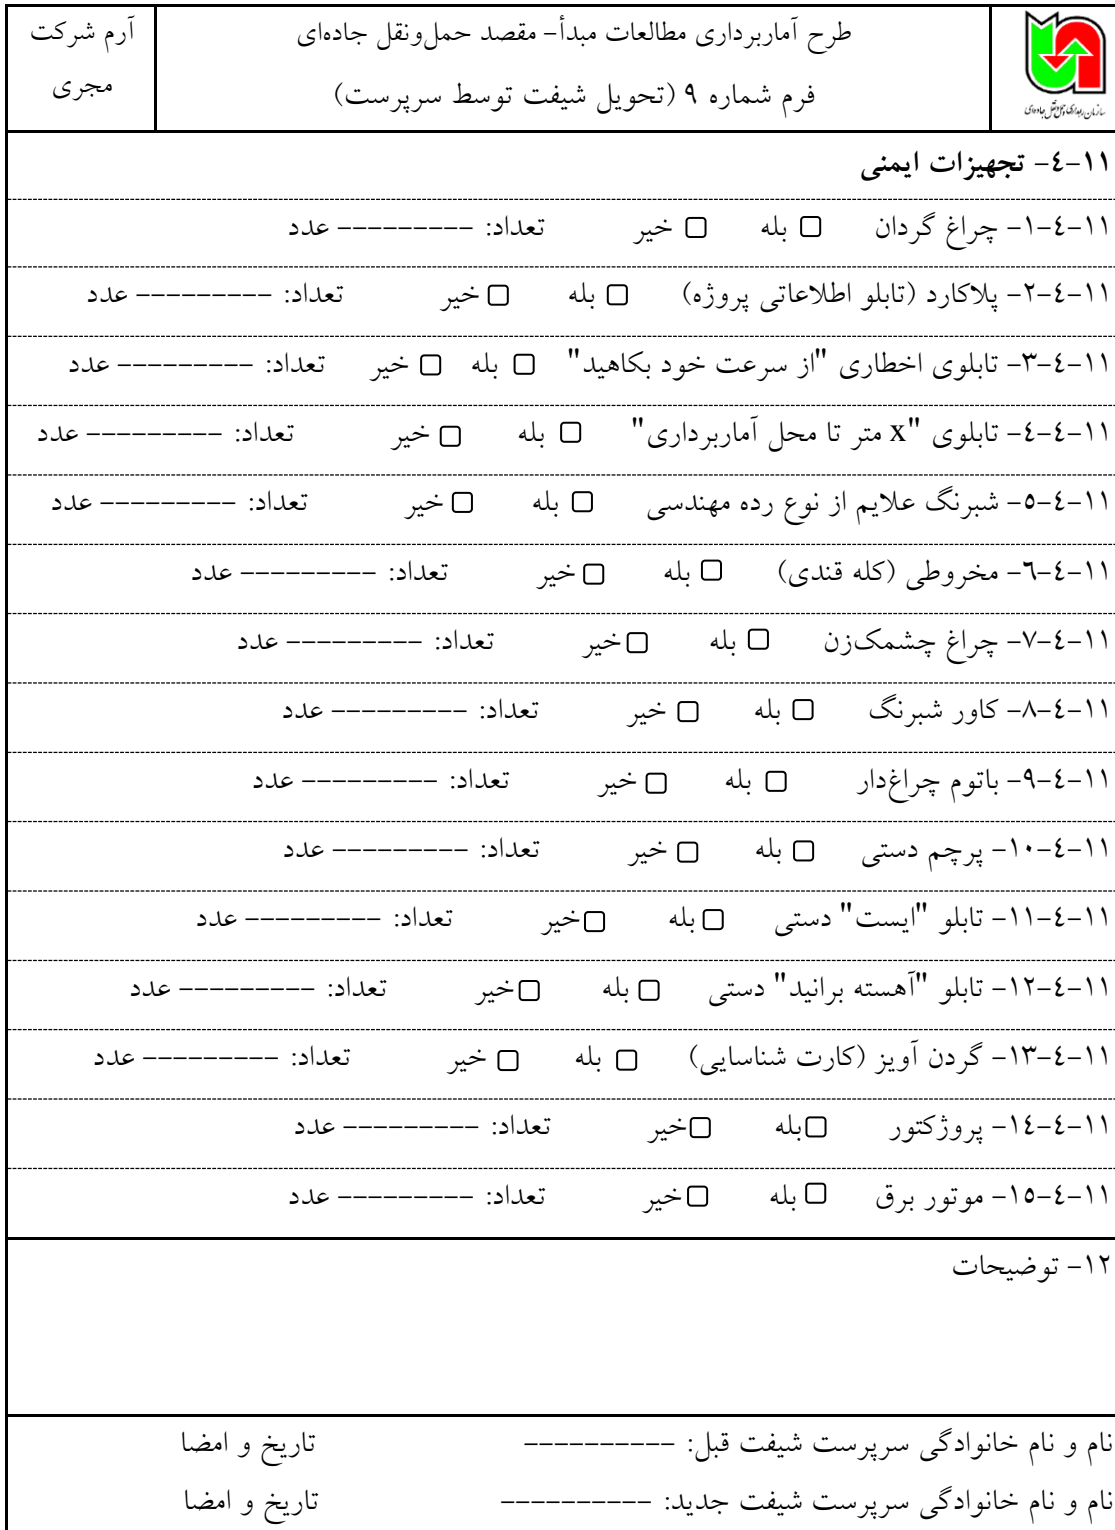 طرح آماربرداری مطالعات مبدأ- مقصد حمل‌ونقل جاده‌ای
فرم شماره ۹ (تحویل شیفت توسط سرپرست)
آرم شرکت
مجری
سازمان راهداری و حمل و نقل جاده‌ای
۱۱-۴- تجهیزات ایمنی
۱۱-۴-۱- چراغ گردان □ بله □ خیر تعداد: --------- عدد
۱۱-۴-۲- پلاکارد (تابلو اطلاعاتی پروژه) □ بله □ خیر تعداد: --------- عدد
۱۱-۴-۳- تابلوی اخطاری "از سرعت خود بکاهید" □ بله □ خیر تعداد: --------- عدد
۱۱-۴-۴- تابلوی "x متر تا محل آماربرداری" □ بله □ خیر تعداد: --------- عدد
۱۱-۴-۵- شبرنگ علایم از نوع رده مهندسی □ بله □ خیر تعداد: --------- عدد
۱۱-۴-۶- مخروطی (کله قندی) □ بله □ خیر تعداد: --------- عدد
۱۱-۴-۷- چراغ چشمک‌زن □ بله □ خیر تعداد: --------- عدد
۱۱-۴-۸- کاور شبرنگ □ بله □ خیر تعداد: --------- عدد
۱۱-۴-۹- باتوم چراغ‌دار □ بله □ خیر تعداد: --------- عدد
۱۱-۴-۱۰- پرچم دستی □ بله □ خیر تعداد: --------- عدد
۱۱-۴-۱۱- تابلو "ایست" دستی □ بله □ خیر تعداد: --------- عدد
۱۱-۴-۱۲- تابلو "آهسته برانید" دستی □ بله □ خیر تعداد: --------- عدد
۱۱-۴-۱۳- گردن آویز (کارت شناسایی) □ بله □ خیر تعداد: --------- عدد
۱۱-۴-۱۴- پروژکتور □ بله □ خیر تعداد: --------- عدد
۱۱-۴-۱۵- موتور برق □ بله □ خیر تعداد: --------- عدد
۱۲- توضیحات
نام و نام خانوادگی سرپرست شیفت قبل: ---------- تاریخ و امضا
نام و نام خانوادگی سرپرست شیفت جدید: ---------- تاریخ و امضا